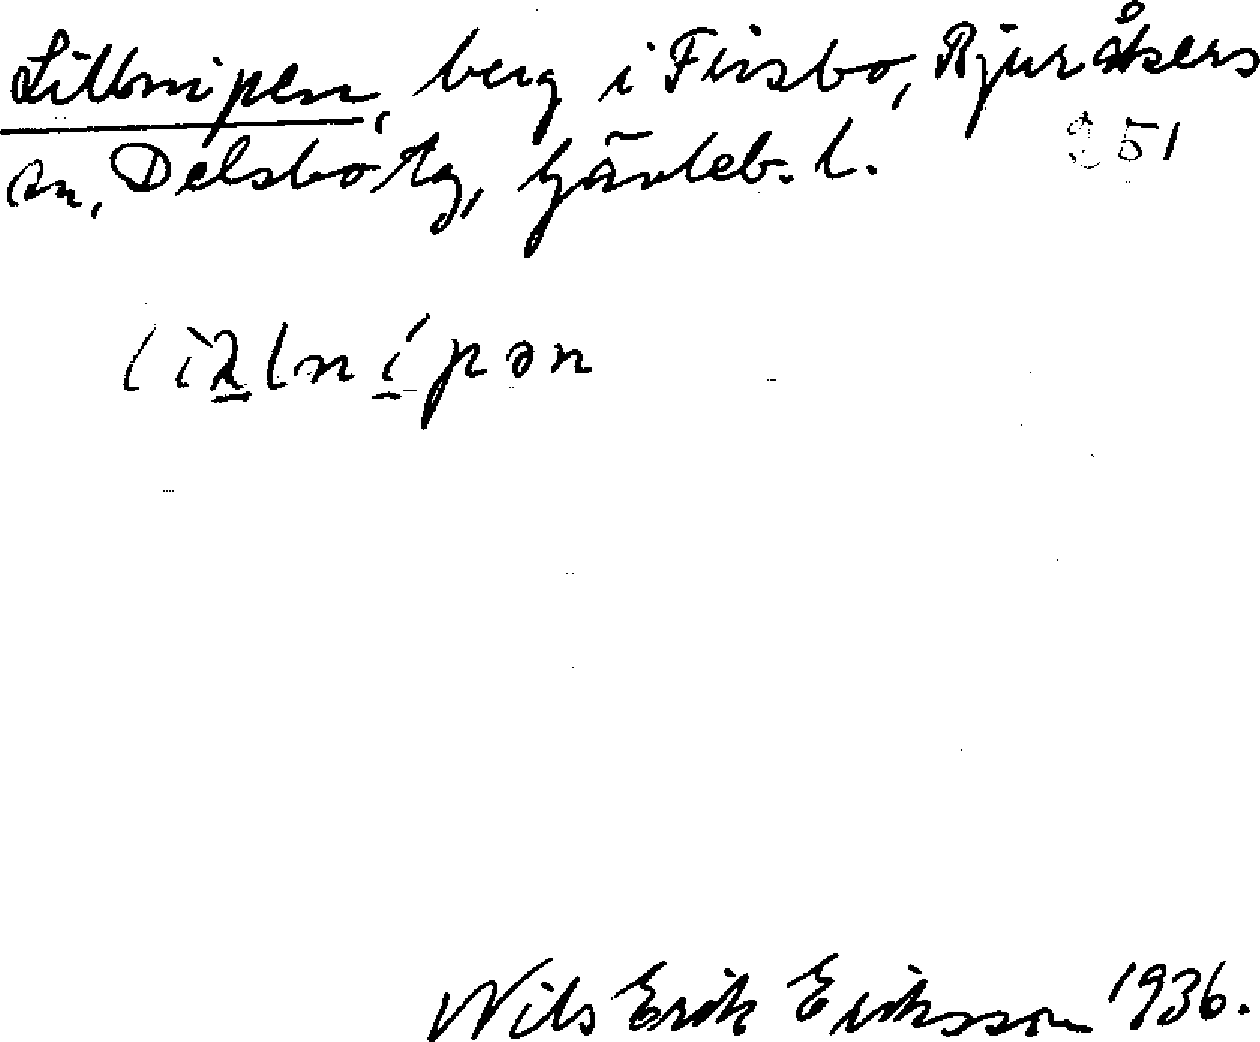 Lillnipen, berg i Firsbo, Bjuråkers
sn, Delsbo tg, Gävleb. l. 251
Nils Erik Eriksson 1936.